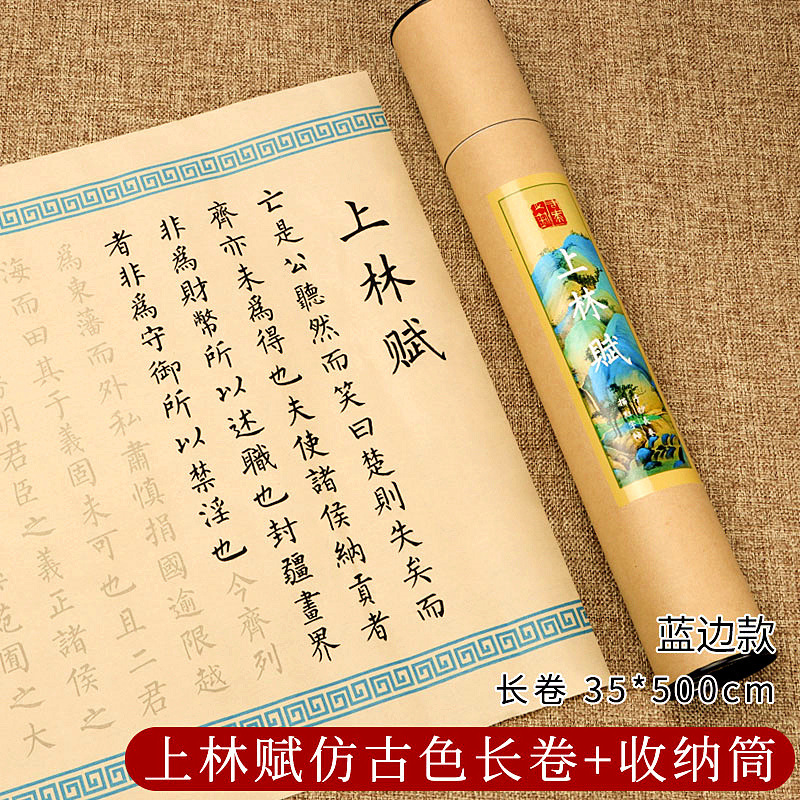 上林赋
亡是公聽然而笑曰楚則失矣而
齊亦未為得也夫使諸侯納貢者
非為財幣所以述職也封疆畫界
者非為守御所以禁淫也今齊列
為東藩而外私肅慎捐國逾限越
海而田其于義固未可也且二君
明君臣之義正諸侯之
苑囿之大
上林賦
蓝边款
长卷 35*500cm
上林赋仿古色长卷+收纳筒